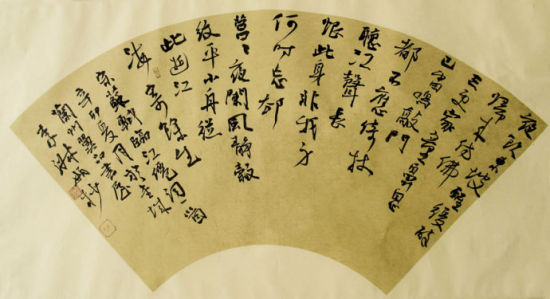 夜飲東坡醒復醉
歸來彷彿
三更家童鼻息
已雷鳴敲門
都不應倚杖
聽江聲長
恨此身非我有
何時忘却
營〻夜闌風靜縠
紋平小舟從
此逝江
海寄餘生詞一首
宋蘇軾臨江仙
辛卯夏月
蘭州